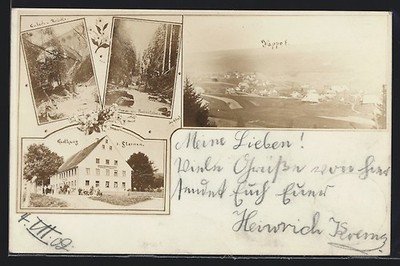 Kappel
Gasthaus
Sternen
Meine Lieben!
Viele Grüße von hier
sendet Euch Euer
Heinrich
4. VII. 02